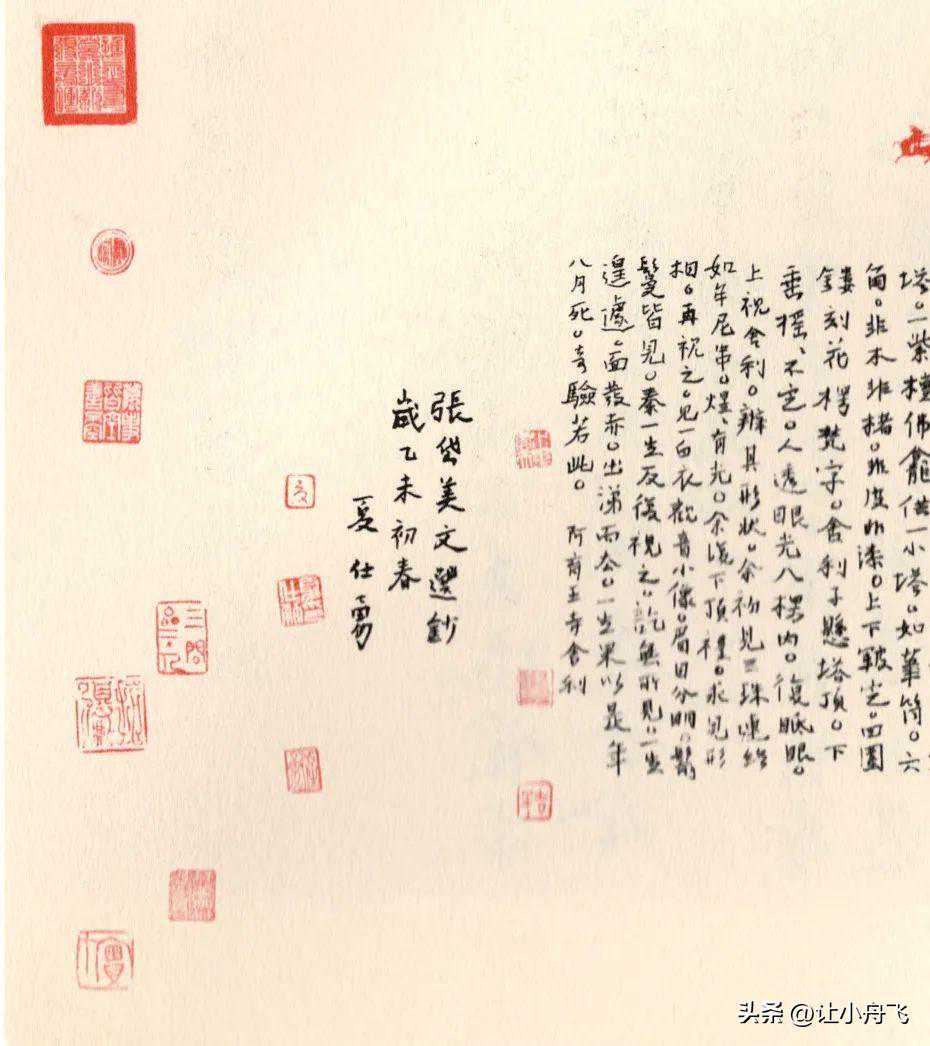 塔。一紫檀佛龕供一小塔。如筆筒。六
角。非木非楮。非皮非漆。上下皸定。四圍
鏤刻花楞梵字。舍利子懸塔頂。下
垂摇、不定。人透眼光入楞内。復眡眼。
上視舍利。辨其形狀。余初見三珠連絡
如牟尼串。煜、有光。余復下頂禮。求見形
相。再視之。見一白衣觀音小像。眉目分明。鬋
鬘皆見。秦一生反復視之。訖無所見。一生
遑遽。面發赤。出涕而去。一生果以是年
八月死。奇驗若此。 阿育王寺舍利
張岱美文選鈔
歲乙未初春
夏仕勇
头条 @让小舟飞